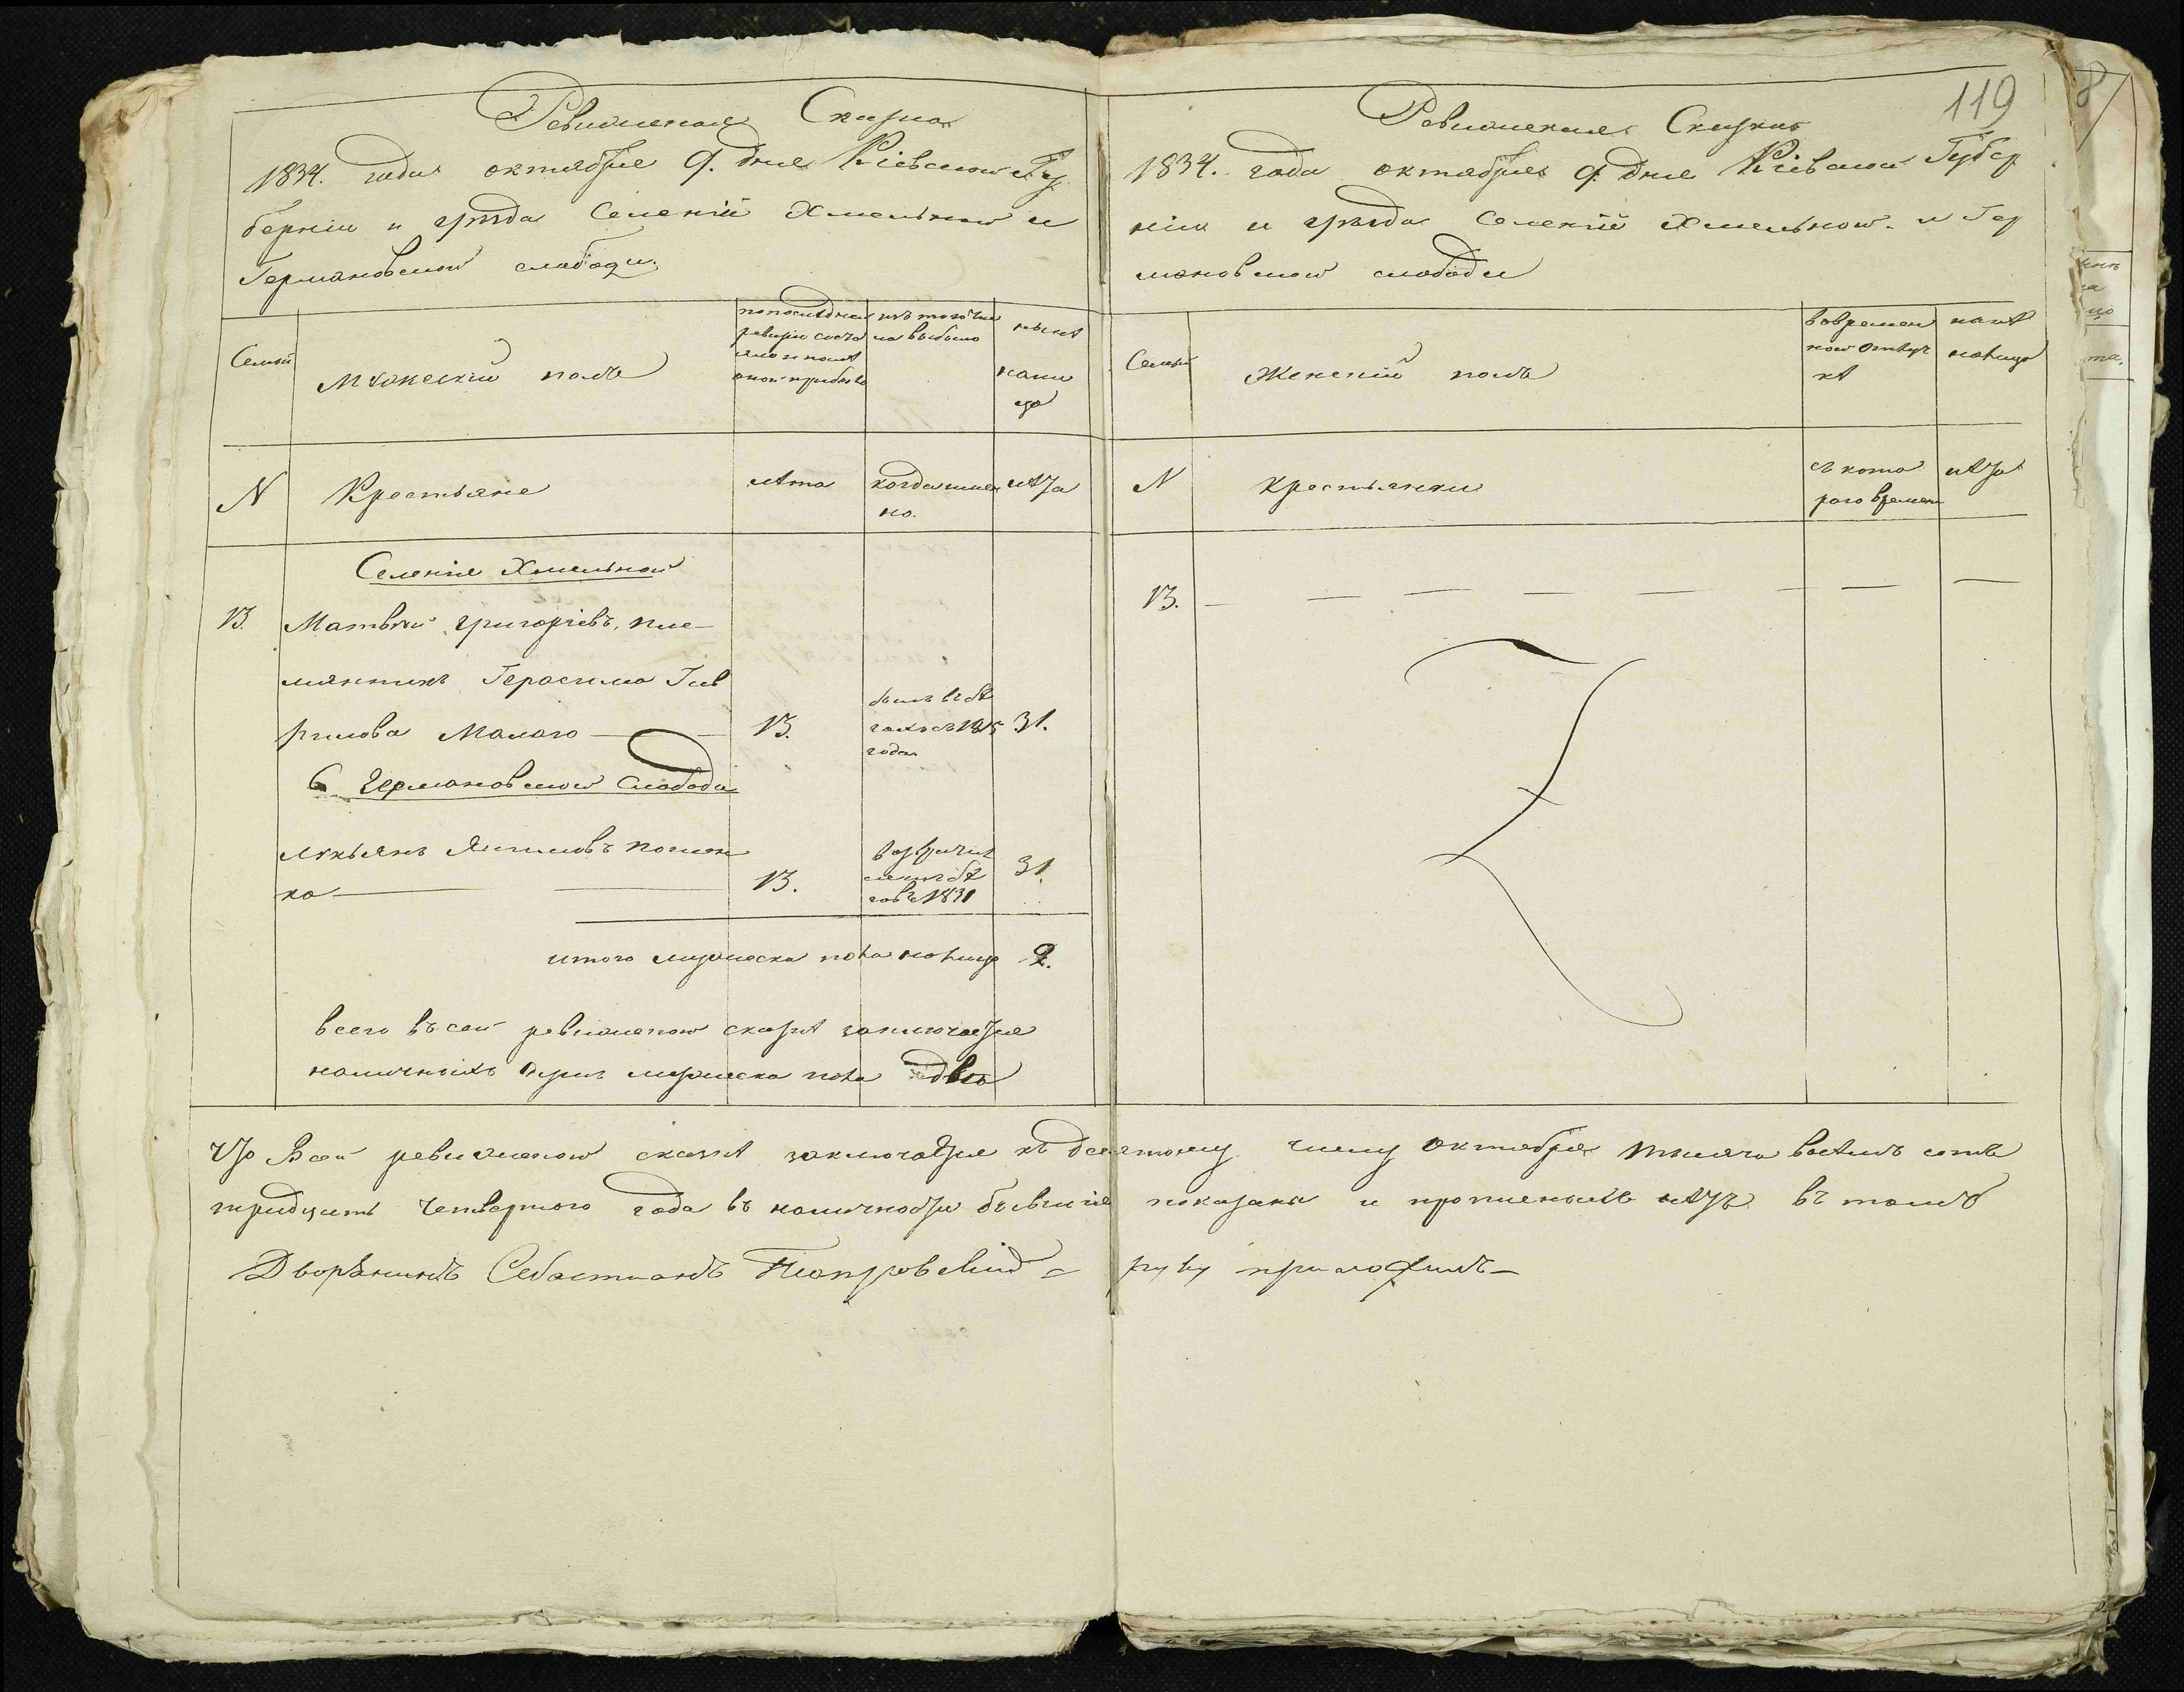 Ревизская Сказка
1834. года октября 9. дня Кіевской Гу
берніи и уезда Селеній Хмельной и
Германовской слободи.
Семьи
Мужескій полъ
по последней ревизіи состояло и после оной прибыло
изъ того числа выбыло
ныне на лицо
N
Крестьяне
лета
когда имен
но.
лета
Селеніе Хмельной
13. Матвей Григоріевъ, пле-
мянникъ Герасима Гав
рилова Малаго — 13. былъ въ бе
гахъ съ 1815 31.
года
С Германовской Слобода
Лукьянъ Якимовъ
ка — 13. возвратил
ся изъ бе
говъ 1831 31.
итого мужеска пола налицо 2.
всего въ сей ревизской сказке заключается
наличныхъ душъ мужеска пола две
119
Ревизская Сказка
1834. года октября 9. дня Кіевской Губер
ніи и уезда Селеній Хмельной и Гер
мановской слободи
Семьи
Женскій полъ
во времен
ной отлуч
ке
ныне
налицо
N
Крестьянки
съ кото
раго времени
лета
13. — — — — — — — —
8
что в сей ревизской сказке заключается къ девятому числу октября тысяча восемъ сотъ
тридцать четвертого года въ наличности бывшіе показаны и прописныхъ нетъ въ томъ
Дворянинъ Себастианъ руку приложилъ —